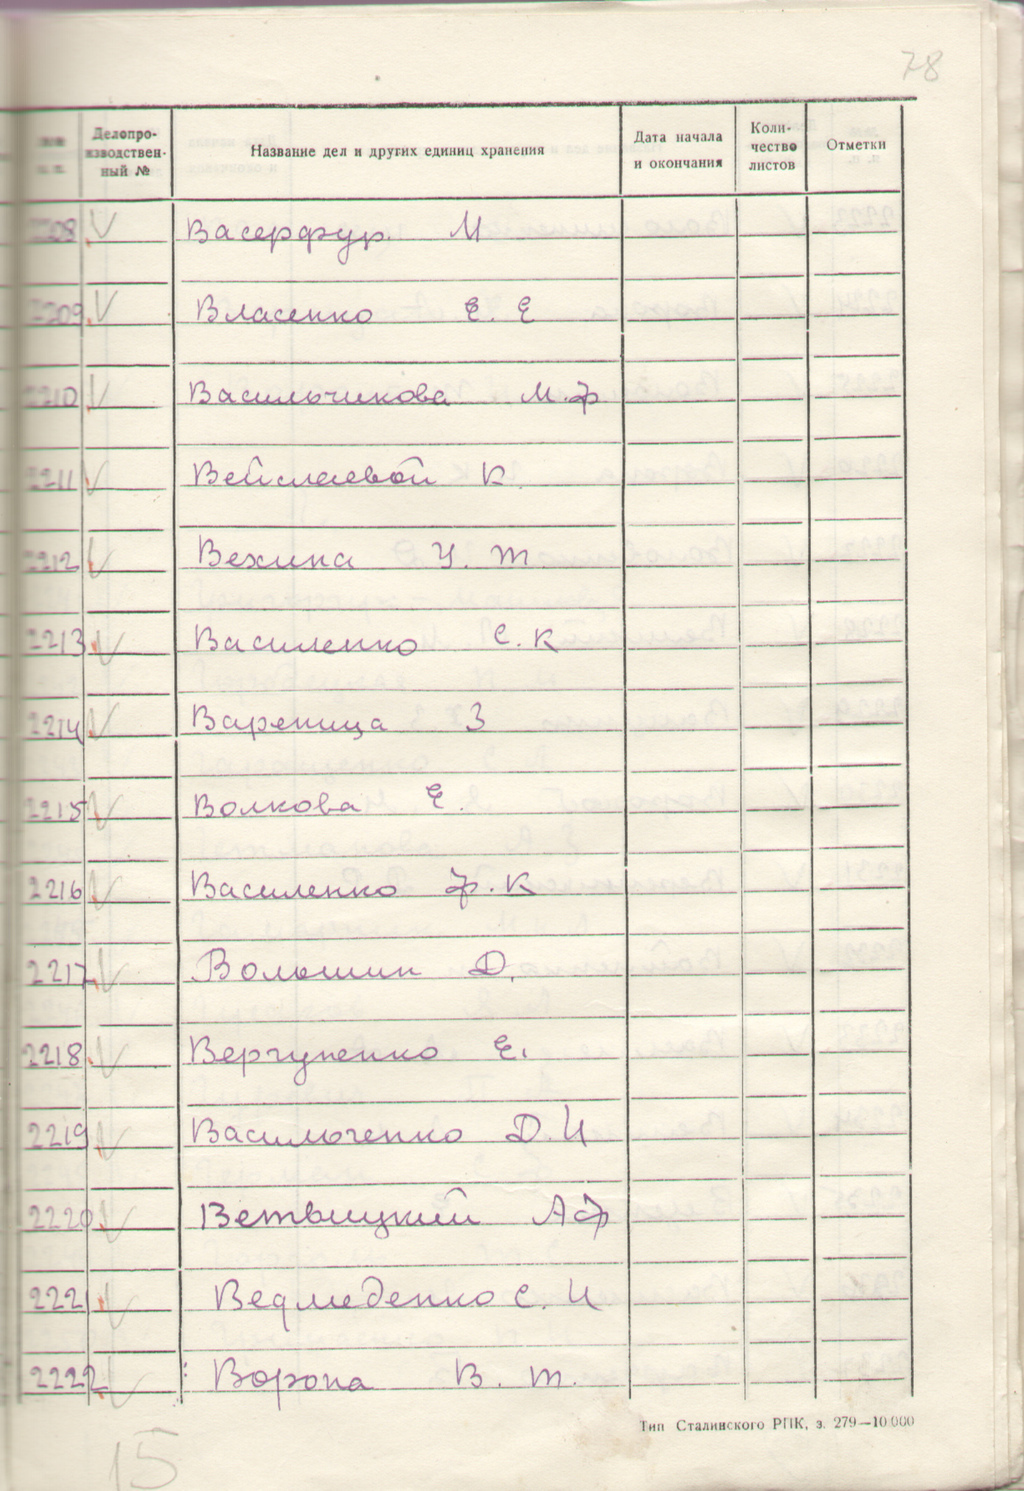 78
Делопроизводственный № Название дел и других единиц хранения Дата начала и окончания Количество листов Отметки
2208 Васерфур. М
2209 Власенко Е. Е
2210 Васильчикова М.Ф
2211 К.
2212 Вехина У. Т
2213 Василенко С. К
2214 Вареница З
2215 Волкова Е.
2216 Василенко Ф. К
2217 Волошин Д.
2218 Вергуненко Е.
2219 Васильченко Д. И
2220 Ветвицкий А Ф
2221 Ведмеденко С. И
2222 Ворона В. Т.
Тип Сталинского РПК, з. 279—10.000
15